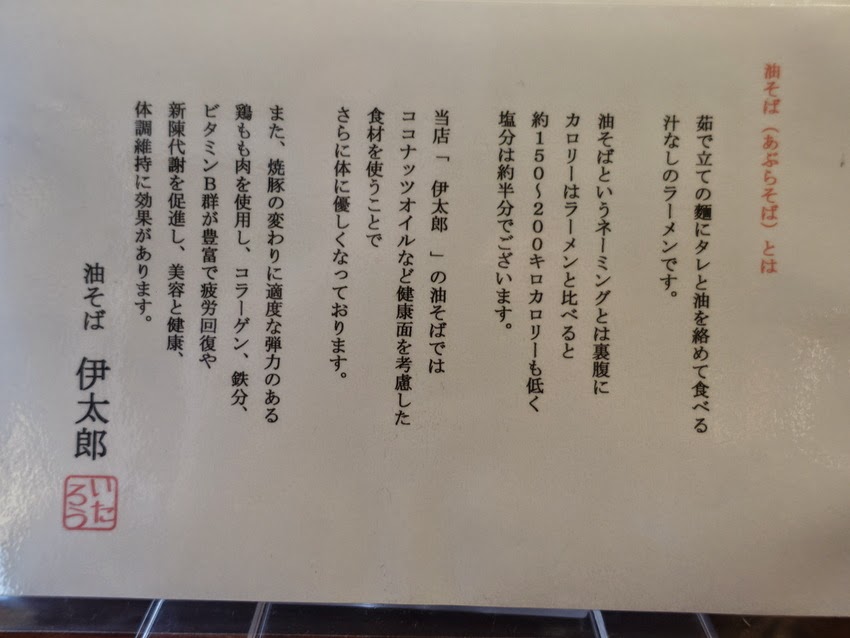 油そば（あぶらそば）とは
茹で立ての麺にタレと油を絡めて食べる
汁なしのラーメンです。
油そばというネーミングとは裏腹に
カロリーはラーメンと比べると
約１５０〜２００キロカロリーも低く
塩分は約半分でございます。
当店「 伊太郎 」の油そばでは
ココナッツオイルなど健康面を考慮した
食材を使うことで
さらに体に優しくなっております。
また、焼豚の変わりに適度な弾力のある
鶏もも肉を使用し、コラーゲン、鉄分、
ビタミンＢ群が豊富で疲労回復や
新陳代謝を促進し、美容と健康、
体調維持に効果があります。
油そば 伊太郎
いたろう